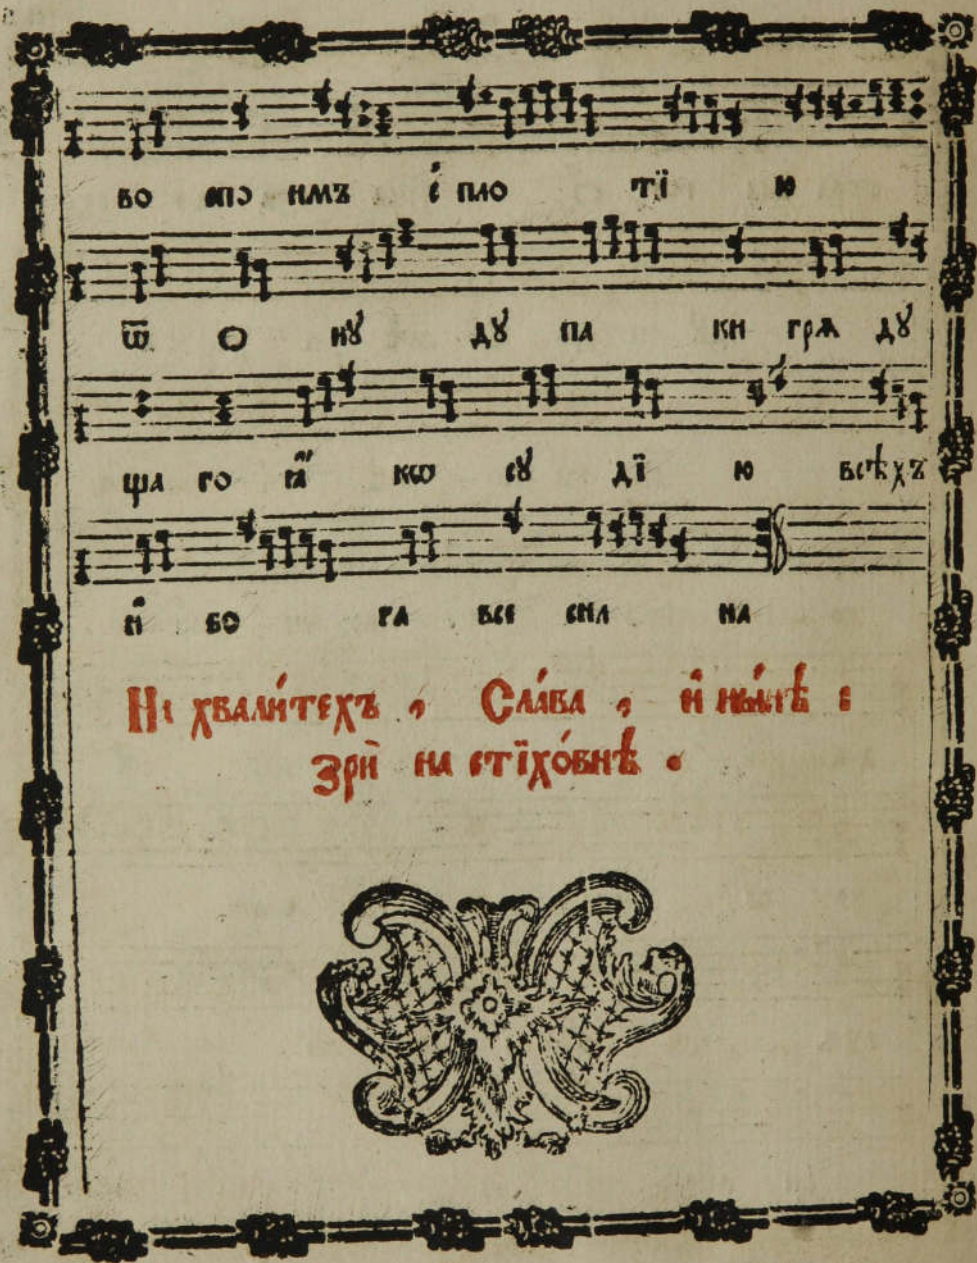 во спо имъ и҆ пло тї ю
ѿ о нꙋ дꙋ па ки грѧ дꙋ
ща го ꙗ҆́ кѡ сꙋ дї ю всѣ́хъ
и҆ бо га все сил на
На хвали́техъ , Сла́ва , и҆ ны́нѣ :
Зри̑ на стїхо́внѣ .